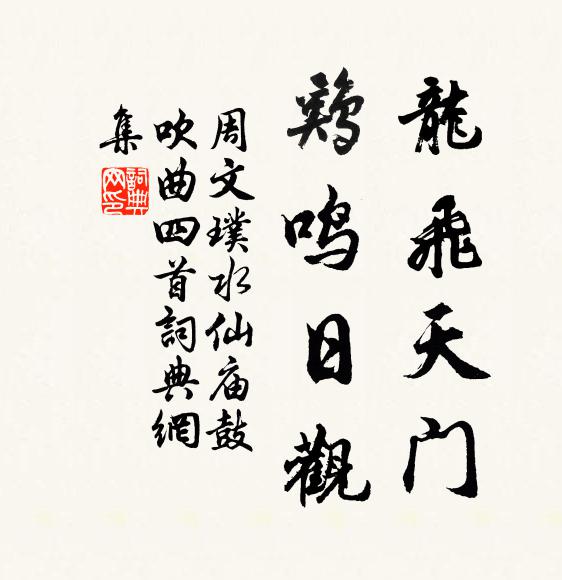 龍飛天门
鷄鸣日觀
周文璞水仙庙鼓
吹曲四首詞典網
集
詞典
网印